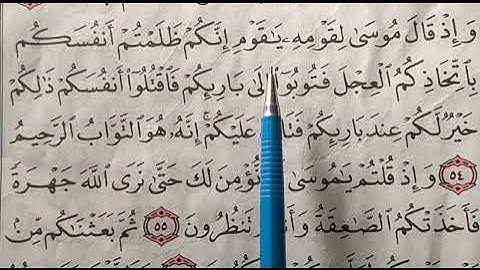 وَإِذۡ قَالَ مُوسَىٰ لِقَوۡمِهِۦ يَٰقَوۡمِ إِنَّكُمۡ ظَلَمۡتُمۡ أَنفُسَكُم
بِٱتِّخَاذِكُمُ ٱلۡعِجۡلَ فَتُوبُوٓاْ إِلَىٰ بَارِئِكُمۡ فَٱقۡتُلُوٓاْ أَنفُسَكُمۡ ذَٰلِكُمۡ
خَيۡرٞ لَّكُمۡ عِندَ بَارِئِكُمۡ عَلَيۡكُمۡۚ إِنَّهُۥ هُوَ ٱلتَّوَّابُ ٱلرَّحِيمُ
٥٤ وَإِذۡ قُلۡتُمۡ يَٰمُوسَىٰ نُّؤۡمِنَ لَكَ حَتَّىٰ نَرَى ٱللَّهَ جَهۡرَةٗ
فَأَخَذَتۡكُمُ ٱلصَّٰعِقَةُ تَنظُرُونَ ٥٥ ثُمَّ بَعَثۡنَٰكُم مِّنۢ